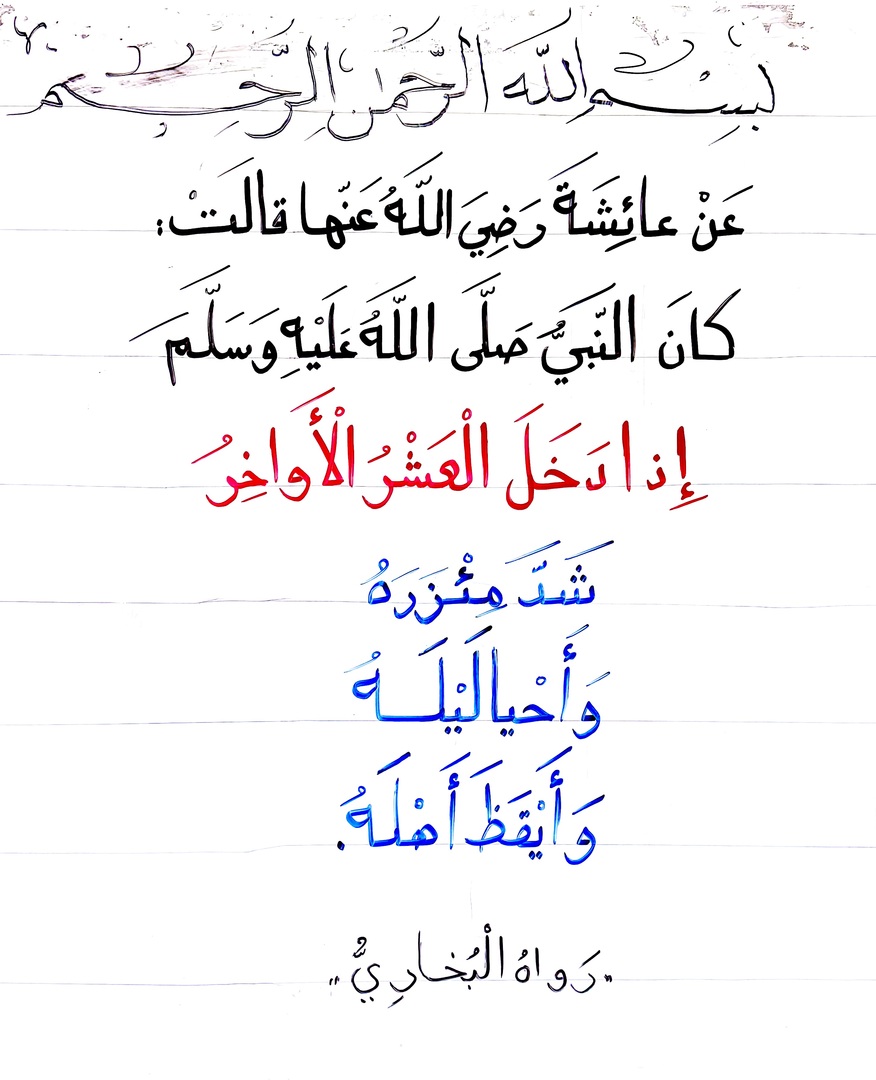 بِسْمِ اللَّهِ الرَّحْمٰنِ الرَّحِيمِ
عَنْ عائِشَةَ رَضِيَ اللَّهُ عَنْها قالَتْ:
كانَ النَّبِيُّ صَلَّى اللَّهُ عَلَيْهِ وَسَلَّمَ
إِذا دَخَلَ الْعَشْرُ الْأَواخِرُ
شَدَّ مِئْزَرَهُ
وَأَحْيا لَيْلَـهُ
وَأَيْقَظَ أَهْلَهُ.
"رَواهُ الْبُخارِيُّ"